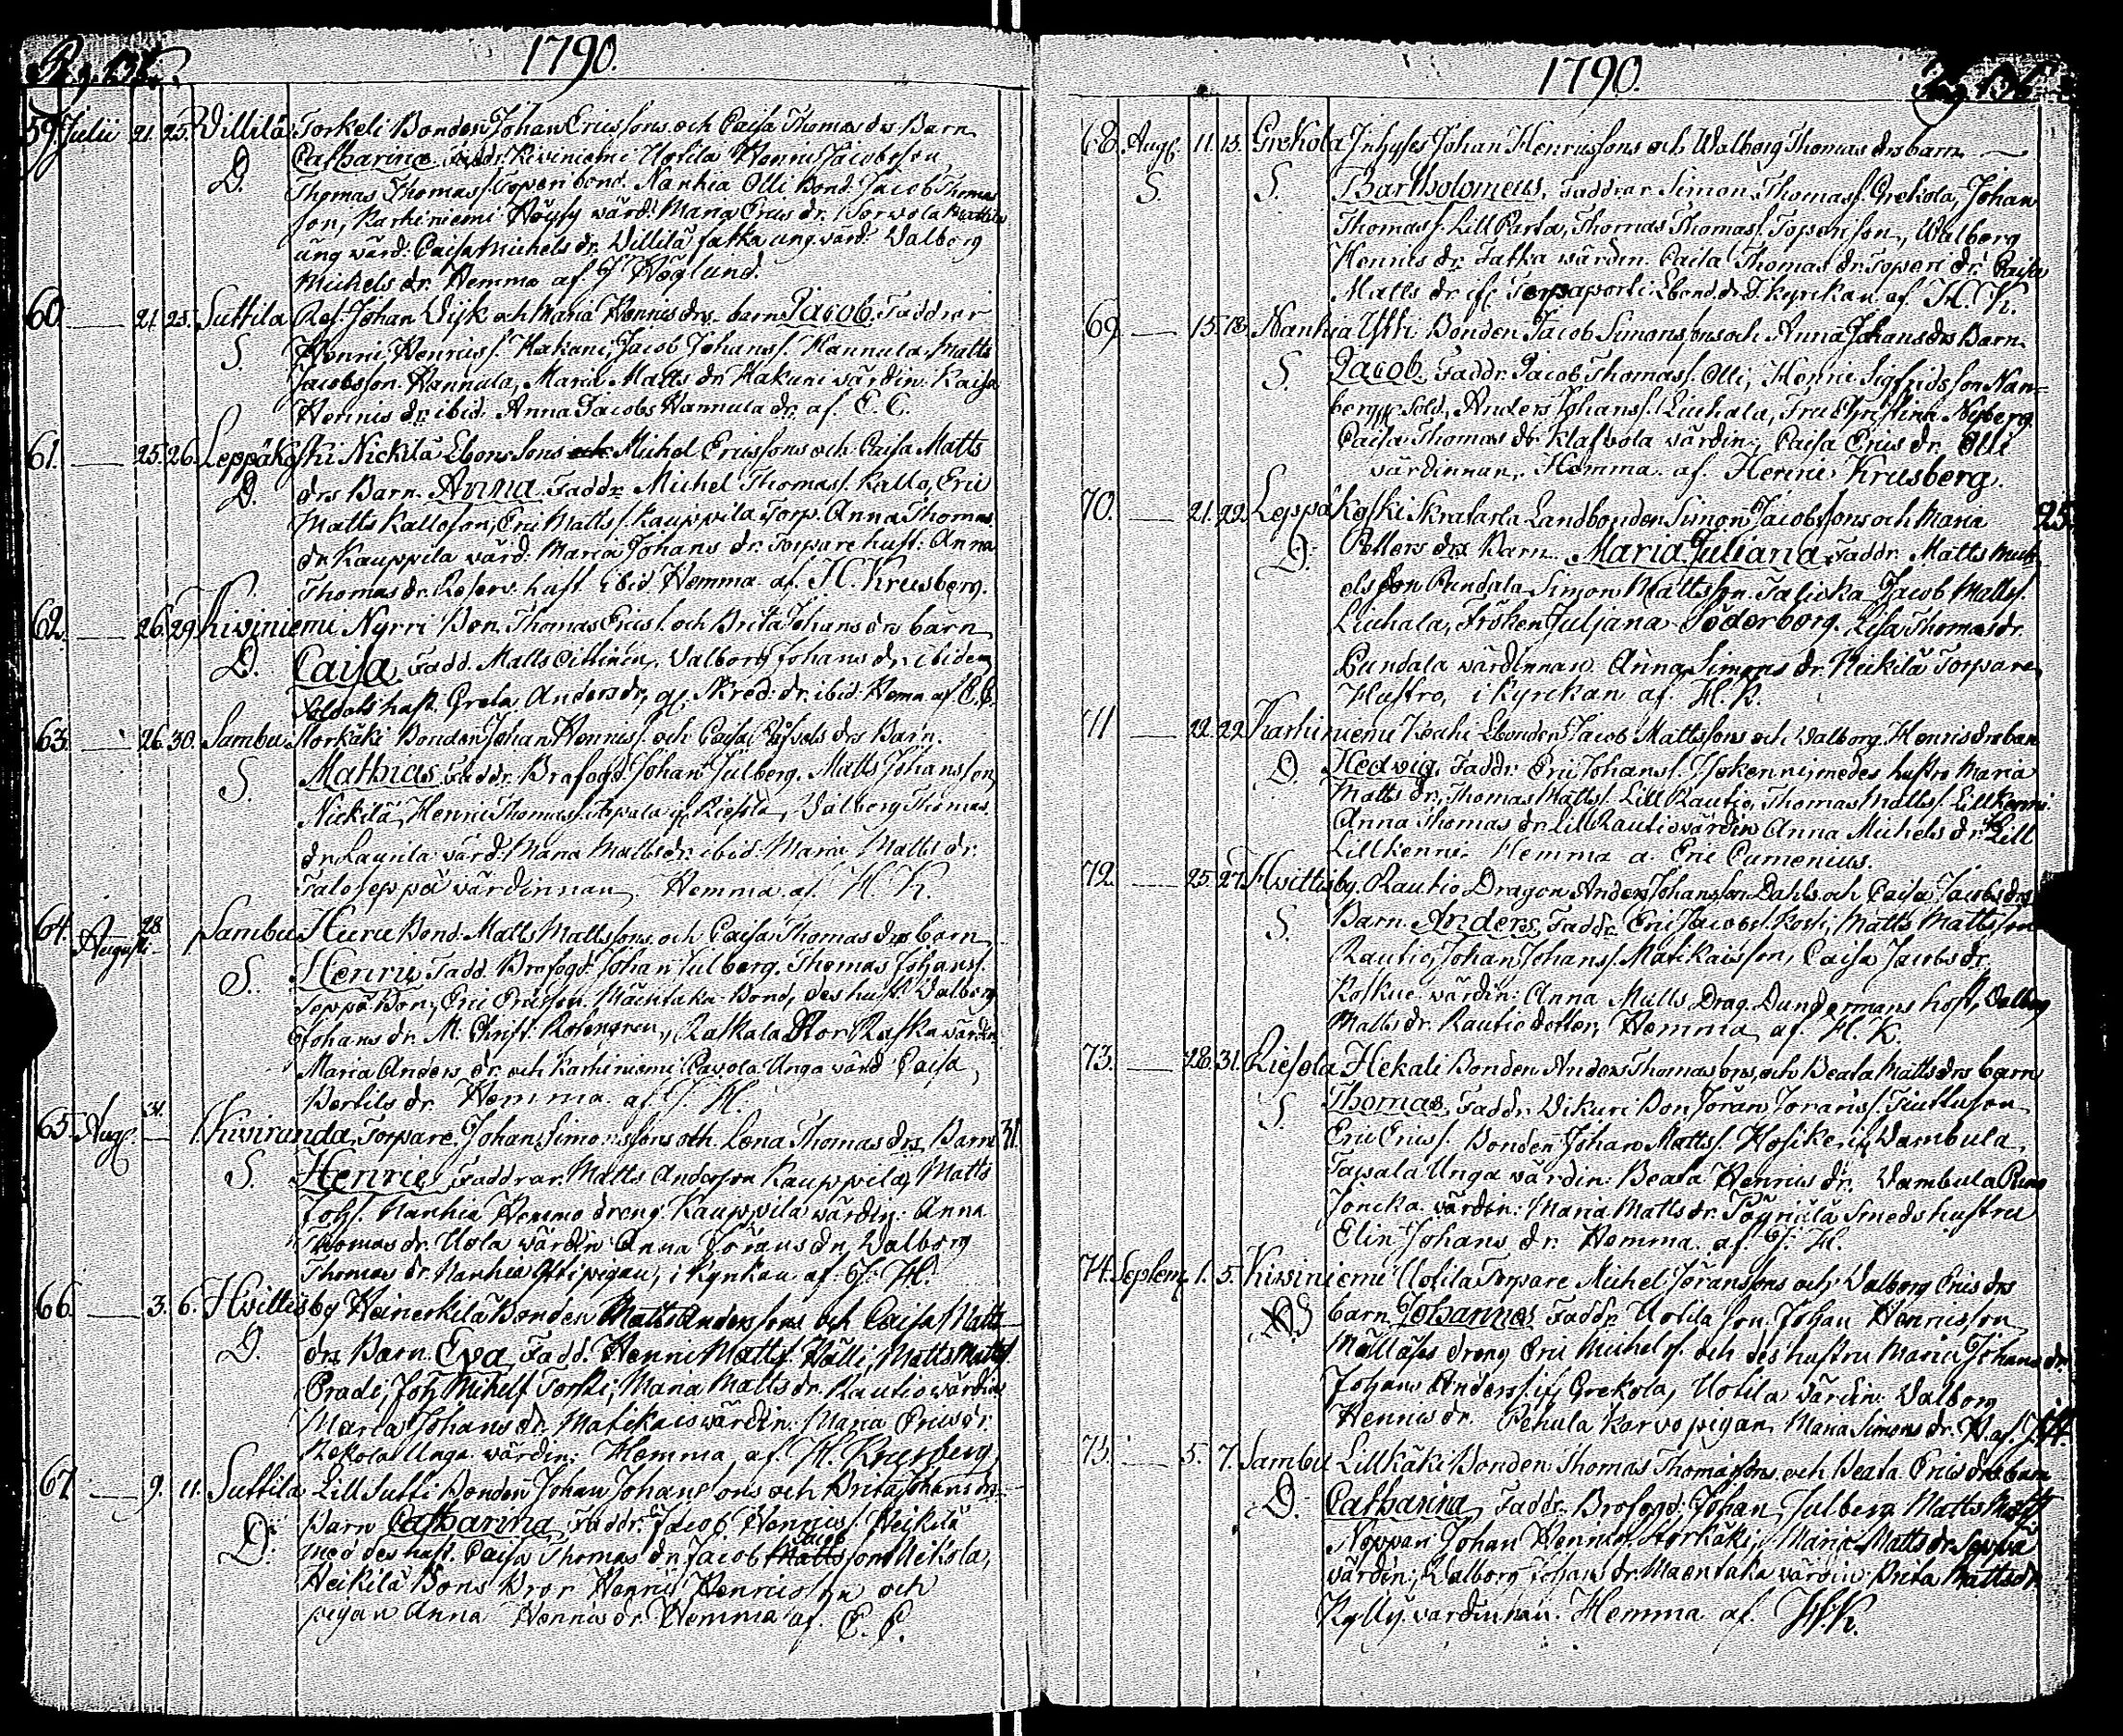 1790.
59. Julii 21. 25. Villilä Torkeli Bonden Johan Ericssons och Caisa Thomas drs Barn
D. Catharina Fadr. Kiviniemi Uotila Henric Jacobsson
Thomas Thomass. Toperi bond. Nanhia Olli Bond. Jacob Thomas
son, Karhiniemi Höysy wärd: Maria Erics dr. Sorvola
ung wärd: Caisa Michels dr. Villilä ung wärd: Valborg
Michels dr. Hemma af J Höglund.
60. — 21. 25. Suttila Ref. Johan Dijk och Maria Henrics drs barn Jacob. Faddrar
S. Henric Henricss. Hakuni, Jacob Johanss. Hannula, Matts
Jacobsson Hannula, Maria Matts dr. Hakuni wärdin. Kaisa
Henrics dr. ibid. Anna Jacobs Hannula dr. af. E. C.
61. — 25. 26. Leppäkoski Nickilä Ebons Sons Michel Ericssons och Caisa Matts
D. drs Barn. Anna Faddr. Michel Thomass. Kallo, Eric
Matts Kalloson, Eric Mattss. Kauppila Torp. Anna Thomas
dr. Kauppila wärd: Maria Johans dr. Torpare hust: Anna
Thomas dr. Reserv. hust. ibid. Hemma af. H. Krusberg.
62. — 26. 29. Kiviniemi Nyrri Bon. Thomas Ericss. och Brita Johans drs barn
D. Caisa Fadd. Matts Valborg Johans dr. ibidem
Soldats hust. Greta Anders dr, Skred. dr. ibid: Hema af E. C.
63. — 26. 30. Sambu Storkäki Bonden Johan Henricss. och Caisa drs Barn.
S. Mathias Faddr. Brofogd. Johan Julberg. Matts Johansson
Nickilä, Henric Thomass. Valborg Thomas
dr. Laurila wärd: Maria Matts dr. ibid. Maria Matts dr.
Taloseppä wärdinnan Hemma af. H. K.
64. Augusti 28. Sambu Huru Bond. Matts Mattssons och Caisa Thomas drs barn
S. Henric Fadd. Brofogd. Johan Julberg. Thomas Johanss.
Seppä Bon, Eric Ericsson. Mäentaka Bond, des hust. Valborg
Johans dr. M. Christ: Rosengren, Raskala Stor Raska wärdin
Maria Anders dr. och Karhiniemi Pavola Unga wärd Caisa
Bertils dr. Hemma af J. H.
65. Aug. 31. 1. Kiviranda Torpare Johan Simonssons och Lena Thomas drs Barn 31.
S. Henric Faddrar. Matts Andersson Kauppila, Matts
Johs. Nanhia Hemmo dreng. Kauppila wärdin: Anna
Thomas dr. Uola wärdin Anna Jörans dr, Valborg
Thomas dr. Nanhia pigan, i Kyrkan af. J. H.
66. — 3. 6. Hvittisby Heinerkilä Bonden Matts Anderssons och Caisa Matts
D. drs Barn. Eva Fadd. Henric Mattss. Hälli, Matts Mattss
Pradi, Joh. Michelss Torkki, Maria Matts dr. Rautio wärdin
Maria Johans dr. Matikais wärdin: Maria Erics dr.
Kekola Unga wärdin: Hemma af. H. Krusberg
67. — 9. 11. Suttila Lill Sutti Bonden Johan Johanssons och Brita Johans drs
D. Barn Catharina Faddr. Jacob Henricss. Heikilä
med des hust. Caisa Thomas dr. Jacob Jacobsson Uikola,
Heikilä Bons Bror Henric Henricsson och
pigan Anna Henrics dr. Hemma af. E. C.
1790.
68. Aug. 11. 15. Grekola Inhyses Johan Henricssons och Walborg Thomas drs barn —
S. S. Bartholomeus. Faddrar Simon Thomass. Grekola, Johan
Thomass. Lill Parta, Thomas Thomass. Toperison, Walborg
Henrics dr. Tatka wärdin. Caisa Thomas dr. Toperi dr. Caisa
Matts dr. kyrckan af. H. K.
69. — 15. 18. Nanhia Ytti Bonden Jacob Simonssons och Anna Johans drs Barn.
S. Jacob Faddr. Jacob Thomass. Olli, Henric Sigfridsson Nan-
Sold., Anders Johanss. Liuhala, Fru Christina Nyberg
Caisa Thomas dr. Klasvola wärdin, Caisa Erics dr. Olli
wärdinnan, Hemma af. Henric Krusberg.
70. — 21. 22. Leppäkoski Skrafarla Landbonden Simon Jacobssons och Maria 25.
D. Petters drs Barn. Maria Juliana Faddr. Matts Mich-
elsson Pundala Simon Mattsson. Jacob Mattss.
Liuhala, Fröken Juljana Söderborg. Lisa Thomas dr.
Pundala wärdinnan Anna Simons dr. Nickilä Torpare
Hustro, i Kyrckan af H. K.
71 — 22. 22. Karhiniemi Keuhi Ebonden Jacob Mattssons och Valborg Henrics drs barn
D. Hedvig. Faddr. Eric Johanss. med des hustro Maria
Matts dr, Thomas Mattss. Lill Rautio, Thomas Mattss. Lillkenni
Anna Thomas dr. Lill Rautio wärdin Anna Michels dr.
Lillkenni. Hemma a. Eric Cumenius.
72. — 25. 27. Hvittisby Rautio Dragon Anders Johansson Dahls och Caisa Jacobs drs
S. Barn. Anders, Faddr. Eric Jacobss. Koski, Matts Mattsson
Rautio, Johan Johanss. Matikaisson, Caisa Jacobs dr.
Koskue wärdin: Anna Matts Drag. Dundermans host, Valborg
Matts dr. Rautio dotter, Hemma af H. K.
73. — 28. 31. Riesola Hekali Bonden Anders Thomassons och Beata Matts drs barn
S. Thomas, Faddr. Vikuri Bon Jöran Joranss.
Eric Ericss. Bonden Johan Mattss. Hosikeri, Vambula
Tavsala Unga wärdin: Beata Henrics dr. Vambula
Joncka wärdin: Maria Matts dr. Smeds hustru
Elin Johans dr. Hemma af. J. H.
74. Septem. 1. 5. Kiviniemi Uotila Torpare Michel Joranssons och Valborg Erics drs
S barn Johannes Faddr. Uotila son. Johan Henricsson
dreng Eric Michels s. och des hustru Maria Johans dr
Johans Anderss. Grekola, Uotila wärdin. Valborg
Henrics dr. Pehula Karvo pigan Maria Simons dr. H. af. J. H.
75. — 5. 7. Sambu Lillkäki Bonden Thomas Thomassons och Beata Erics drs barn
D. Catharina, Faddr. Brofogd. Johan Julberg. Matts Matts
Noppari Johan Henricss. Storkäki, Maria Matts dr.
wärdin, Valborg Johans dr. Mäentaka wärdin Brita Matts dr
Kylly wärdinnan. Hemma af. H. K.